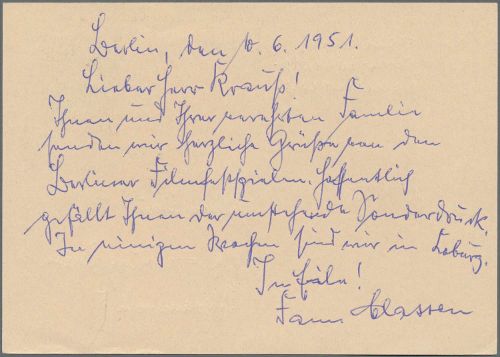 Berlin, den 10.6.1951.
Lieber Herr Krauß!
Ihnen und Ihrer verehrten Familie
senden wir herzliche Grüße von den
Berliner Filmfestspielen. Hoffentlich
gefällt Ihnen der umstehende Sonderdruck.
In einigen Wochen sind wir in Coburg.
In Eile!
Fam. Classen